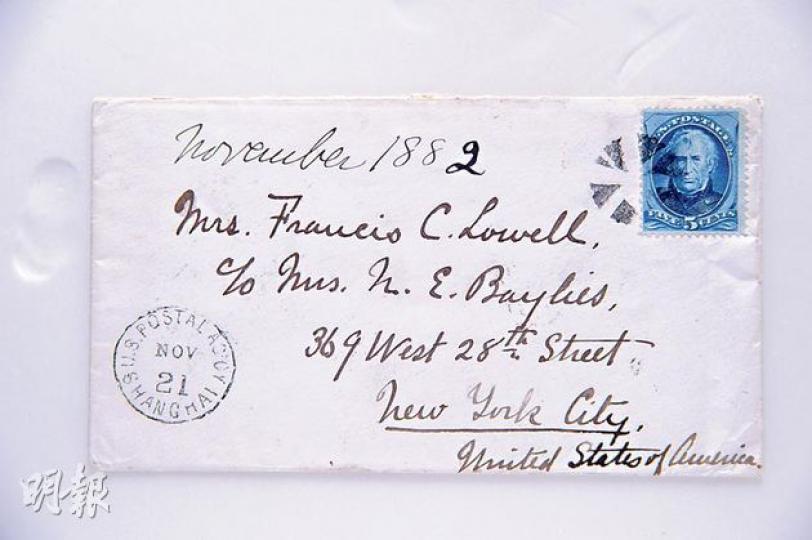 November 1882
U.S. POSTAGE
FIVE 5 CENTS
Mrs. Francis C. Lowell,
c/o Mrs. N. E. Baylies,
369 West 28th Street,
New York City,
United States of America.
U.S. POSTAL AGCY
NOV
21
SHANGHAI
明報